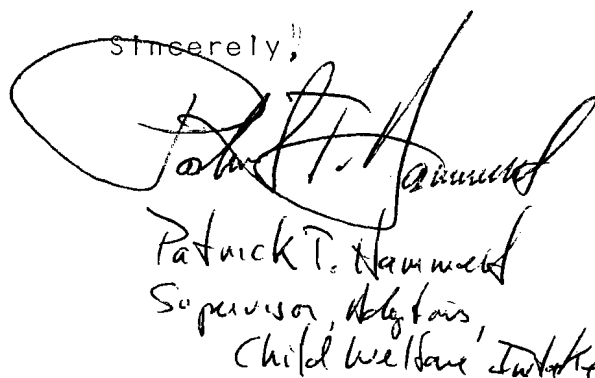 Sincerely,
Patrick T. Hammond
Patrick T. Hammond
Supervisor, Adoptions,
Child Welfare Intake